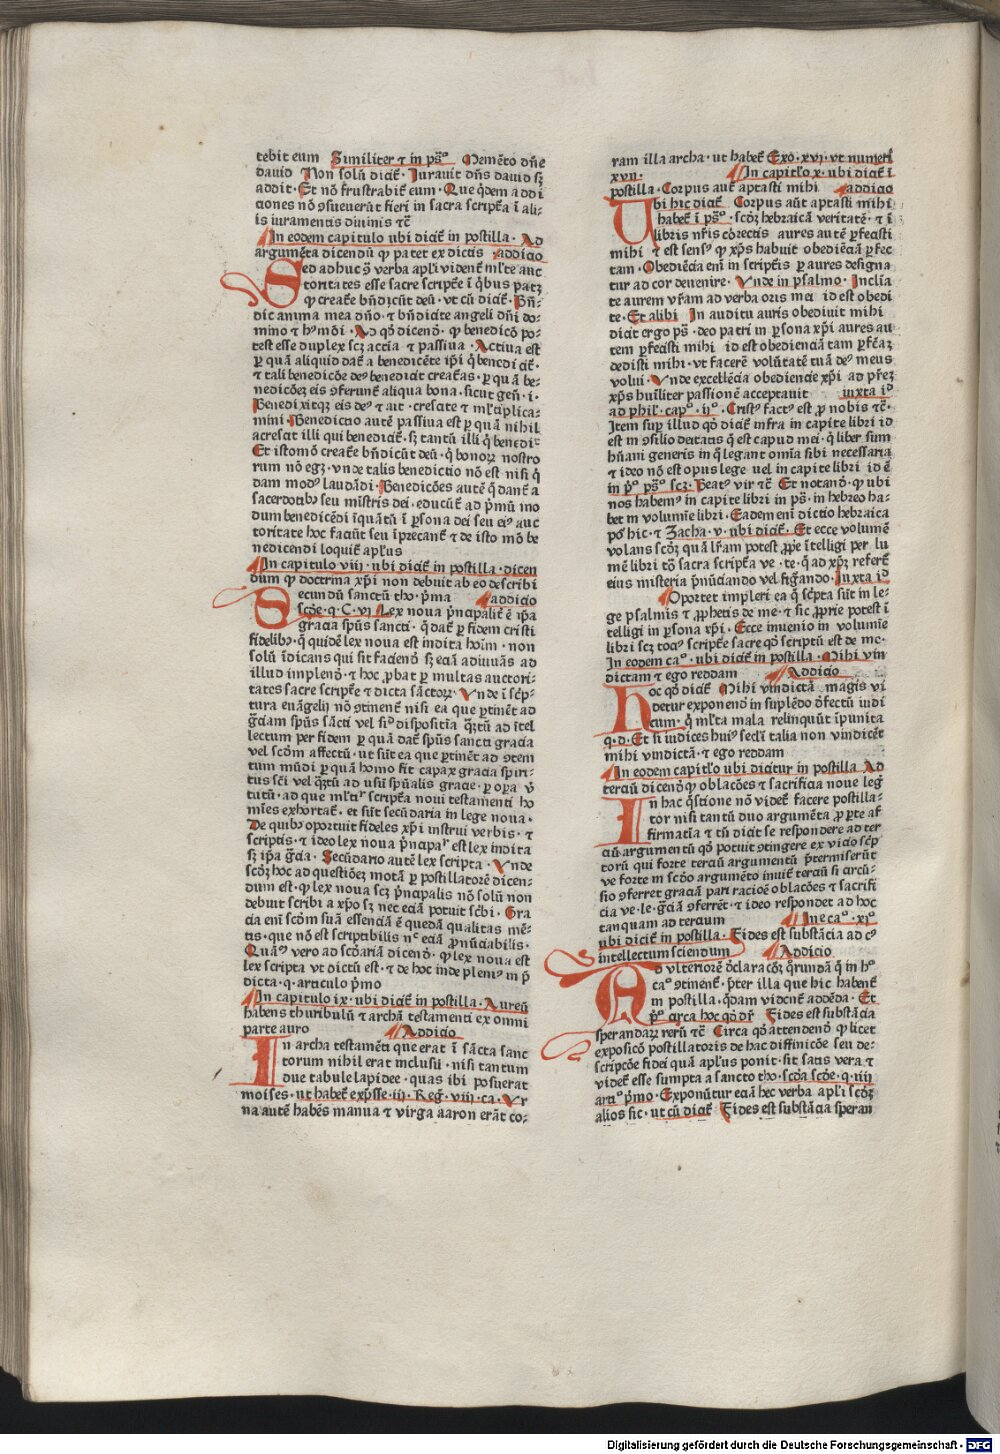 tebit eum Similiter ⁊ in ps̄º Memēto dn̄e
dauid Non solū dicit̄ · Iurauit dn̄s dauid sꝫ
addit · Et nō frustrabit̄ eum · Que q̄dem addi
ciones nō ɔsueuerūt fieri in sacra script̄a ī ali-
is iuramentis diuinis ⁊c̄
In eodem capitulo ubi dicit̄ in postilla · Ad
argumēta dicendū ꝙ patet ex dictis addicio
Sed adhuc ꝯ̄ verba apl'i vident̄ ml'te auc
toritates esse sacre script̄e ī q̄bus patꝫ
ꝙ creat̄e bn̄dicūt deū · vt cū dicit̄ · Bn̄-
dic anima mea dn̄o · ⁊ bn̄dicite angeli dn̄i do-
mino ⁊ hꝰ mōi · Ad qd̄ dicend̄ · ꝙ benedicō po-
test esse duplex scꝫ actīa ⁊ passiua · Actiua est
ꝑ quā aliquid dat̄ a benedicēte ip̄i q̄ benedicit̄ ·
⁊ tali benedicōe deꝰ benedicit creat̄as · ꝑ quā be-
nedicōeꝫ eis ɔferunt̄ aliqua bona · sicut gen̄ · i ·
Benedixitqꝫ eis deꝰ ⁊ ait · crescite ⁊ ml'tiplica-
mini · Benedictio autē passiua est ꝑ quā nihil
acrescit illi qui benedicit̄ · sꝫ tantū illi q̄ benedit̄
Et isto mō creat̄e bn̄dicūt deū · q̄ bonoꝝ nostro
rum nō egꝫ · vnde talis benedictio nō est nisi q̄
dam modꝰ laudādi · Benedicōes autē q̄ dant̄ a
sacerdotibꝰ seu mīstris dei · educūt̄ ad p̄mū mo
dum benedicēdi īquātū ī ꝑsona dei seu eiꝰ auc
toritate hoc faciūt seu īprecant̄ ⁊ de isto mō be
nedicendi loquit̄ apl'us
In capitulo viij · ubi dicit̄ in postilla · dicen
dum ꝙ doctrina xp̄i non debuit ab eo describi
Secundū sanctū tho · p̄ma addicio
scd̄e · q · C · vi Lex noua p̄ncipalit̄ ē ip̄a
gracia spūs sancti · q̄ dat̄ ꝑ fidem cristi
fidelibꝰ · q̄ quidē lex noua est indita hoīm · non
solū īdicans qui sit faciend̄ sꝫ eciā adiuuās ad
illud implend̄ · ⁊ hoc ꝓbat ꝑ multas auctori-
tates sacre script̄e ⁊ dicta sāctoꝝ · Vnde ī scēp-
tura euāgelij nō ɔtinent̄ nisi ea que ꝑtinēt ad
gr̄ciam spūs sācti vel sic̄ dispositīa q̄ꝫtū ad ītel
lectum per fidem ꝑ quā dat̄ spūs sancti gracia
vel scd̄m affectū · ut sūt ea que ꝑtinēt ad ɔtem
tum mūdi ꝑ quā homo fit capax gracia spiri-
tus sc̄i vel q̄ꝫtū ad usū spūalis gracie · ꝑ oꝑa v̄
tutū · ad que ml'tipꝰ script̄a noui testamenti ho
mīes exhortat̄ · et sūt secūdaria in lege noua ·
De quibꝰ oportuit fideles xp̄i instrui verbis · ⁊
scriptis · ⁊ ideo lex noua p̄ncipaꝰ est lex indita
sꝫ ip̄a gr̄cia · Secūdario autē lex scripta · Vnde
scd̄ꝫ hoc ad questiōeꝫ motā ꝑ postillatorē dicen-
dum est · ꝙ lex noua scꝫ p̄ncipalis nō solū non
debuit scribi a xp̄o sꝫ nec eciā potuit sc̄bi · Gra
cia eni scd̄m suā essenciā ē quedā qualitas mē-
tis · que nō est scriptibilis nꝰ eciā ꝓnūciabilis ·
Quāuꝰ vero ad scd̄ariā dicend̄ · ꝙ lex noua est
lex scripta vt dictū est · ⁊ de hoc inde pleniꝰ in p̄
dicta · q · articulo p̄mo
In capitulo ix · ubi dicit̄ in postilla · Aureū
habens thuribulū ⁊ archā testamenti ex omni
parte auro Addicio
In archa testamēti que erat ī sācta sanc
torum nihil erat inclusū · nisi tantum
due tabule lapidee · quas ibi posuerat
moises · ut habet̄ exp̄sse · iij · Reḡ · viij · ca · Vr
na autē habēs manna ⁊ virga aaron erāt co-
ram illa archa · ut habet̄ Exo · xvi · vt numeri
xvij · In capitl'o x · ubi dicit̄ ī
postilla · Corpus aut̄ aptasti mihi addicio
Ubi hic dicit̄ Corpus aūt aptasti mihi
habet̄ ī ps̄º · scd̄ꝫ hebraicā veritatē · ⁊ ī
libris nr̄is cōrectis aures autē ꝑfecisti
mihi ⁊ est sensꝰ ꝙ xp̄s habuit obediēciā ꝑfec
tam · Obediēcia eni in script̄is ꝑ aures designa
tur ad cor deuenire · Vnde in psalmo · Inclīa
te aurem vr̄am ad verba oris mei id est obedi
te · Et alibi In auditu auris obediuit mihi
dicit ergo ps̄ · deo patri in ꝑsona xp̄i aures au
tem ꝑfecisti mihi id est obedienciā tam ꝑfc̄āꝫ
dedisti mihi · vt facerē volūtatē tuā deꝰ meus
volui · Vnde excellēcia obediencie xp̄i ad p̄reꝫ
xp̄s hūiliter passionē acceptauit iuxta id
ad phil' · capº · ijº · Cristꝰ factꝰ est ꝓ nobis ⁊c̄ ·
Item suꝑ illud qd̄ dicit̄ infra in capite libri id
est in ɔsilio deitatis q̄ est capud mei · q̄ liber sum
hūani generis in q̄ legant om̄ia sibi necessaria
⁊ ideo nō est opus lege uel in capite libri id ē
in p̄º ps̄º scꝫ · Beatꝰ vir ⁊c̄ Et notand̄ · ꝙ ubi
nos habemꝰ in capite libri in ps̄ · in hebreo ha-
bet̄ in volumīe libri · Eadem eni dictio hebraica
pōꝰ hic · ⁊ Zacha · v · ubi dicit̄ · Et ecce volumē
volans scd̄ꝫ quā lr̄am potest ꝓpe ītelligi per lu
mē libri tō sacra script̄a ve · te · q̄ ad xp̄ꝫ refert̄
eius misteria p̄nūciando vel figr̄ando · Iuxta id
Oportet impleri ea q̄ scēpta sūt in le-
ge psalmis ⁊ ꝓphetis de me · ⁊ sic ꝓprie potest ī
telligi in ꝑsona xp̄i · Ecce inuenio in volumīe
libri scꝫ tociꝰ script̄e sacre qd̄ scriptū est de me ·
In eodem caº · ubi dicit̄ in postilla · Mihi vin
dictam ⁊ ego reddam Addicio
Hoc qd̄ dicit̄ Mihi vindictā magis vi
detur exponend̄ in suplēdo d̄fectū iudi
cum · q̄ ml'ta mala relinquūt īpunita
q · d · Et si iudices huiꝰ secl'i talia non vindicēt
mihi vindictā · ⁊ ego reddam
In eodem capitl'o ubi dicitur in postilla Ad
terciū dicend̄ ꝙ oblacōes ⁊ sacrificia noue leḡ
In hac q̄stione nō videt̄ facere postilla-
tor nisi tantū duo argumēta ꝓ parte af
firmatīa ⁊ tn̄ dicit se respondere ad ter
ciū argumentū qd̄ potuit ɔtingere ex vicio scēp
torū qui forte terciū argumentū p̄termiserūt
ve forte in scd̄o argumēto inuit̄ terciū si circū-
sio ɔferret graciā pari racioē oblacōes ⁊ sacrifi
cia ve · le · gr̄ciā ɔferrēt · ⁊ ideo respondet ad hoc
tanquam ad tercium In eº caº · xiº
ubi dicit̄ in postilla · Fides est substācia ad cꝰ
intellectum sciendum Addicio
Ad vlteriorē d̄claracōeꝫ q̄rundā q̄ in hº
caº ɔtinent̄ · p̄ter illa que hic habent̄
in postilla · q̄dam vident̄ addēda · Et
p̄º circa hoc qd̄ dr̄ Fides est substācia
sperandaꝝ rerū ⁊c̄ Circa qd̄ attendend̄ ꝙ licet
exposicō postillatoris de hac diffinicōe seu de-
scripcōe fidei quā apl'us ponit · sit satis vera ⁊
videt̄ esse sumpta a sancto tho · scd̄a scd̄e · q · iiij
artiº p̄mo · Exponūtur eciā hec verba apl'i scd̄ꝫ
alios sic · ut cū dicit̄ Fides est substācia speran
Digitalisierung gefördert durch die Deutsche Forschungsgemeinschaft - DFG